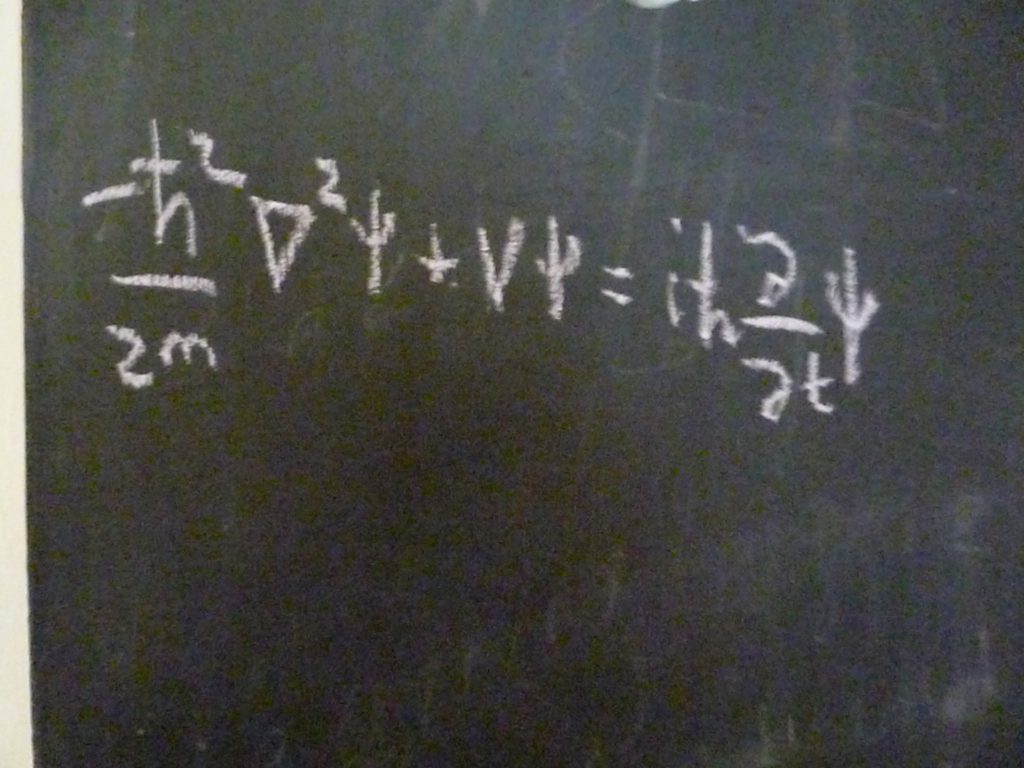 -ħ²/2m ∇²ψ + Vψ = iħ ∂/∂t ψ